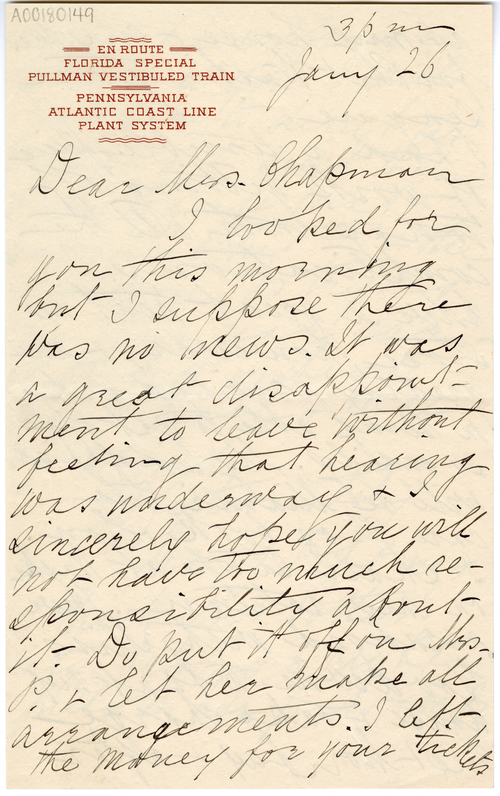 A00180149
EN ROUTE
FLORIDA SPECIAL
PULLMAN VESTIBULED TRAIN
PENNSYLVANIA
ATLANTIC COAST LINE
PLANT SYSTEM
3 p m
Jany 26
Dear Mrs. Chapman
I looked for
you this morning
but I suppose there
was no news. It was
a great disappoint-
ment to leave without
feeling that hearing
was underway & I
sincerely hope you will
not have too much re-
sponsibility about
it. Do put it off on Mrs.
P. & let her make all
arrangements. I left
the money for your tickets